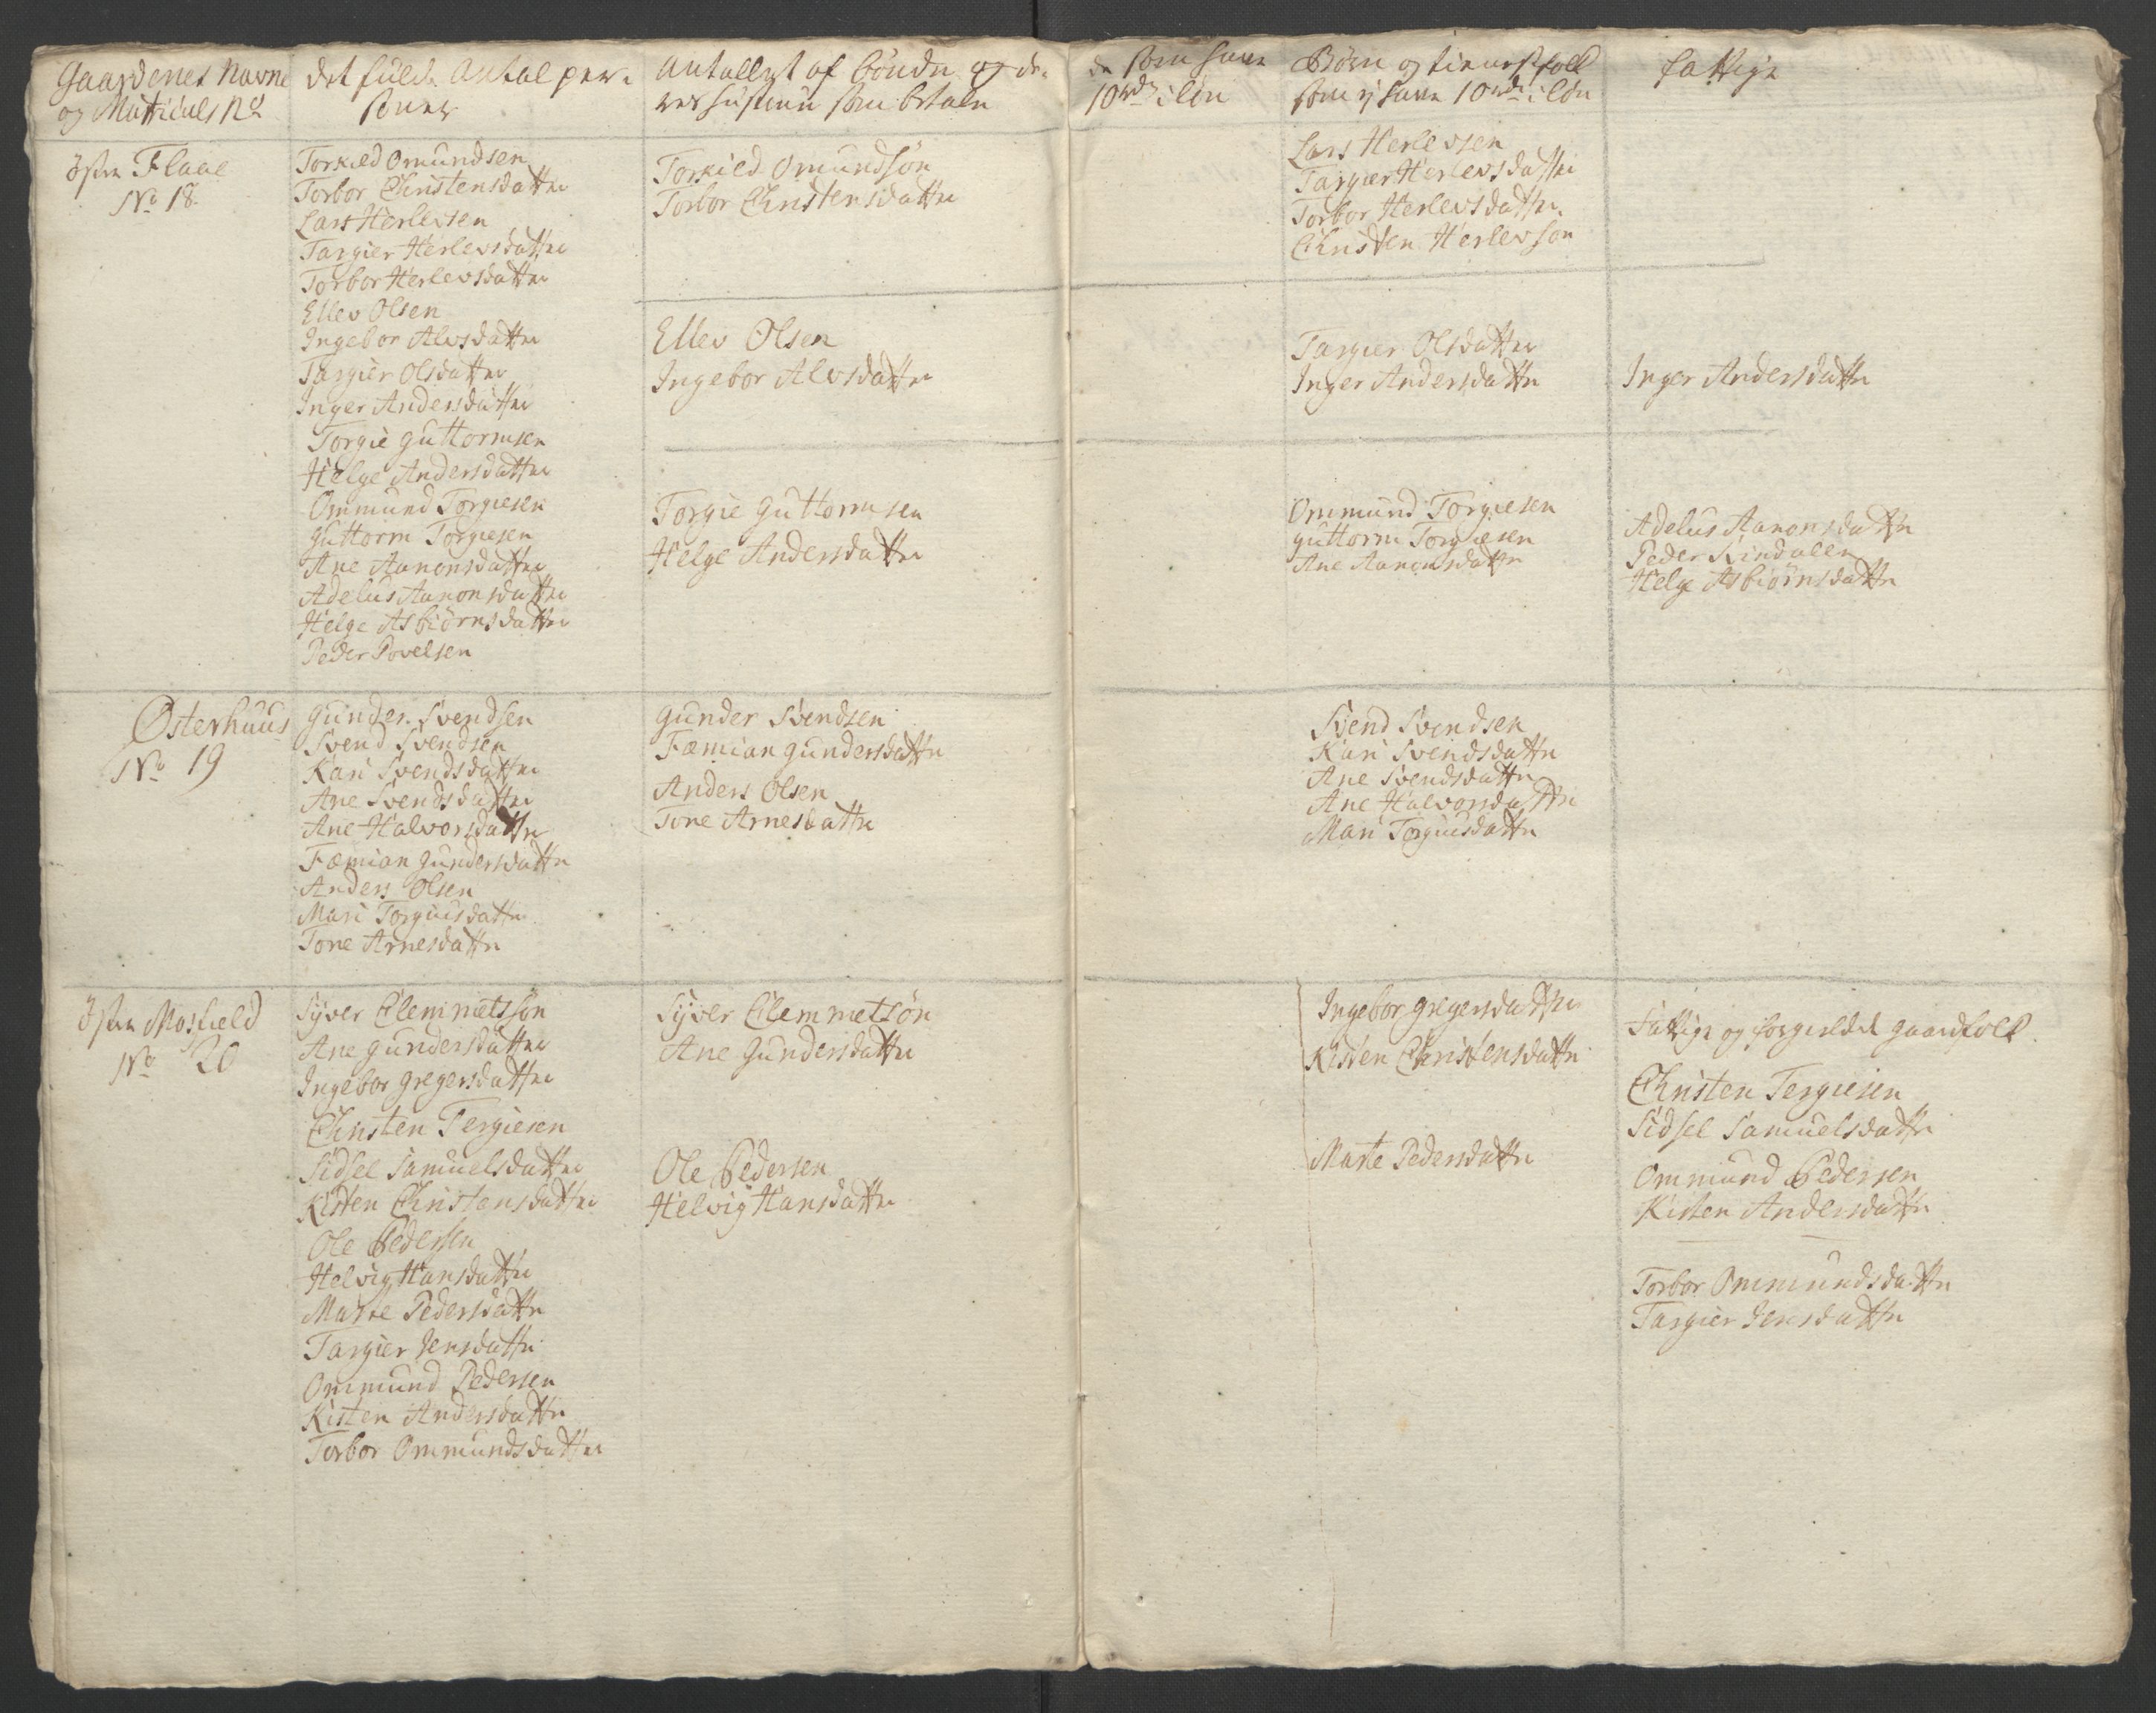 Gaardenes Navne
og Matriculs No
det fulde Antal per-
soner
Antallet af bönder og de-
res hustruer som betale
de som have
10 rdr i lön
Börn og tienestfolk
som ej have 10 rdr i lön
fattige
östre Flaae
No 18
Torkild Omundsen
Torbor Christensdatter
Lars Herlevsen
Targier Herlevsdatter
Torbor Herlevsdatter
Ellev Olsen
Ingebor Alvsdatter
Targier Olsdatter
Inger Andersdatter
Torgie Guttormsen
Helge Andersdatter
Ommund Torgiesen
Guttorm Torgiesen
Ane Aanonsdatter
Adelus Aanonsdatter
Helge Asbiörnsdatter
Peder Povelsen
Torkild Omundsön
Torbor Christensdatter
Ellev Olsen
Ingebor Alvsdatter
Torgie Guttormsen
Helge Andersdatter
Lars Herlevsen
Targier Herlevsdatter
Torbor Herlevsdatter
Christen Herlevsön
Targier Olsdatter
Inger Andersdatter
Ommund Torgiesen
Guttorm Torgiesen
Ane Aanonsdatter
Inger Andersdatter
Adelus Aanonsdatter
Peder Rindalen
Helge Asbiörnsdatter
Østerhuus
No 19
Gunder Svendsen
Svend Svendsen
Kari Svendsdatter
Ane Svendsdatter
Ane Halvorsdatter
Fæmian Gundersdatter
Anders Olsen
Mari Torgiusdatter
Tone Arnesdatter
Gunder Svendsen
Fæmian Gundersdatter
Anders Olsen
Tone Arnesdatter
Svend Svendsen
Kari Svendsdatter
Ane Svendsdatter
Ane Halvorsdatter
Mari Torgiusdatter
östre Mosfield
No 20
Syver Clemmetssön
Ane Gundersdatter
Ingebor Gregersdatter
Christen Tergiesen
Sidsel Samuelsdatter
Kisten Christensdatter
Ole Pedersen
Helvig Hansdatter
Marte Pedersdatter
Targier Jensdatter
Ommund Pedersen
Kisten Andersdatter
Torbor Ommundsdatter
Syver Clemmetsön
Ane Gundersdatter
Ole Pedersen
Helvig Hansdatter
Ingebor Gregersdatter
Kisten Christensdatter
Marte Pedersdatter
Fattige og forgieldet gaardfolk
Christen Tergiesen
Sidsel Samuelsdatter
Ommund Pedersen
Kisten Andersdatter
Torbor Ommundsdatter
Targier Jensdatter